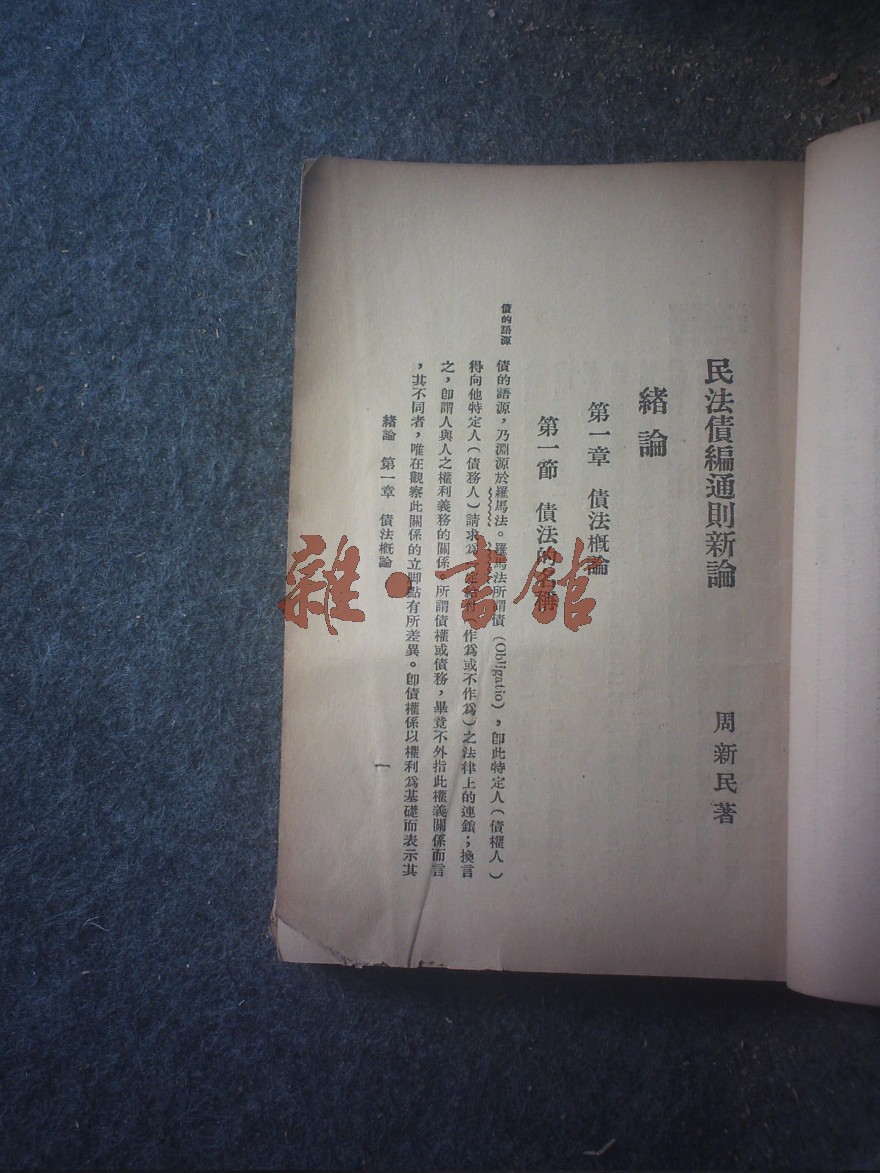 民法債編通則新論
周新民著
緒論
第一章 債法概論
第一節 債法的名稱
債的語源
債的語源，乃淵源於羅馬法。羅馬法所謂債（Obligatio），卽此特定人（債權人）
得向他特定人（債務人）請求爲 作爲或不作爲）之法律上的連鎖；換言
之，卽謂人與人之權利義務的關係 所謂債權或債務，畢竟不外指此權義關係而言
，其不同者，唯在觀察此關係的立脚點有所差異。卽債權係以權利爲基礎而表示其
緒論 第一章 債法概論
一
雜·書館